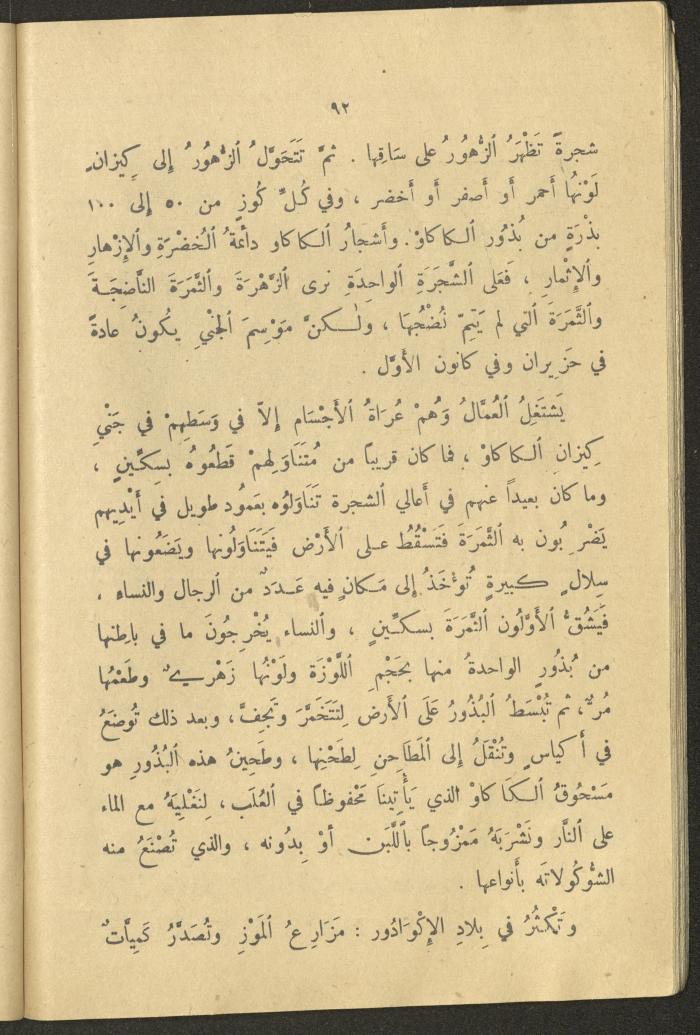 ٩٢
شجرةً تَظْهَرُ ٱلزُّهورُ على سَاقِها . ثمَّ تَتَحَوَّلُ ٱلزُّهُورُ إلى كِيزانٍ
لَوْنُهَا أحمر أو أصفر أو أخضر ، وفي كُلِّ كُوزٍ من ٥٠ إلى ١٠٠
بِذْرَةٍ من بُذُور ٱلكاكاوْ . وأشجارُ ٱلكاكاو دائمَةُ ٱلْخُضْرَةِ وٱلإِزْهارِ
وٱلإِثْمارِ ، فَعَلى ٱلشَّجَرَةِ ٱلواحِدَةِ نرى ٱلزَّهْرَةَ وٱلثَّمَرَةَ النَّاضِجَةَ
وٱلثَّمَرَةَ ٱلَّتي لم يَتِمّ نُضْجُهَا ، ولٰكنَّ مَوْسِمَ ٱلجَنْيِ يكُونُ عادةً
في حَزيران وفي كانون الأوّل .
يَشتَغِلُ ٱلعُمَّالُ وَهُمْ عُرَاةُ ٱلأَجْسَامِ إلاّ في وَسَطِهِمْ في جَنْيِ
كِيزانِ ٱلكاكاوْ ، فما كان قريبًا من مُتَنَاوَلِهِمْ قَطَعُوهُ بِسكِّينٍ ،
وما كانَ بعيداً عنهم في أعالي ٱلشجرة تَنَاوَلُوه بِعَمُود طويل في أيْدِيهم
يَضْرِبُون به ٱلثَّمَرَةَ فَتَسْقُطُ على ٱلأَرْضِ فَيَتَنَاوَلُونها ويَضَعُونها في
سِلالٍ كبيرةٍ تُؤْخَذُ إلى مَكانٍ فيه عَدَدٌ من الرجال والنساء .
فَيَشُقُّ ٱلأَوَّلُون ٱلثَّمَرَةَ بسكِّينٍ ، وٱلنساء يُخْرِجُونَ ما في باطِنها
من بُذُورٍ الواحدةُ منها بحَجْمِ ٱللَّوْزَة ولَوْنُها زَهْرِيٌّ وطَعْمُها
مُرٌّ، ثم تُبْسَطُ ٱلبُذُورُ عَلَى ٱلأَرض لِتَتَخَمَّرَ وتَجِفَّ، وبعد ذلك تُوضَعُ
في أكياسٍ وتُنْقَلُ إلى ٱلمَطَاحنِ لِطَحْنِها ، وطَحِينُ هذه ٱلبُذُورِ هو
مَسْحُوقُ ٱلكاكاوْ الذي يَأْتِينَا مَحْفوظاً في ٱلعُلَب ، لِنَغْلِيَهُ مع الماء
على ٱلنَّار ونَشْرَبَهُ مَمْزُوجاً بٱللَّبَن أوْ بِدُونه ، والذي تُصْنَعُ منه
الشُّوكُولاتَه بأنواعها .
وتَكْثُرُ في بِلادِ الإِكْوَادُور : مَزَارِعُ ٱلمَوْزِ وتُصَدَّرُ كَمِيَّاتٌ